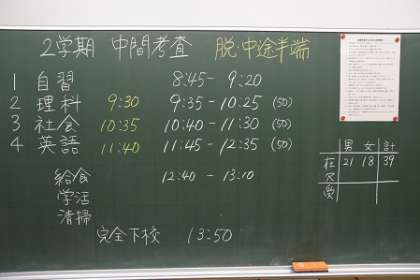 2学期 中間考査 脱 中途半端
1 自習 8:45- 9:20
2 理科 9:30 9:35 - 10:25 (50)
3 社会 10:35 10:40 - 11:30 (50)
4 英語 11:40 11:45 - 12:35 (50)
給食 12:40 - 13:10
学活
清掃
完全下校 13:50
男 女 計
在 21 18 39
欠
受